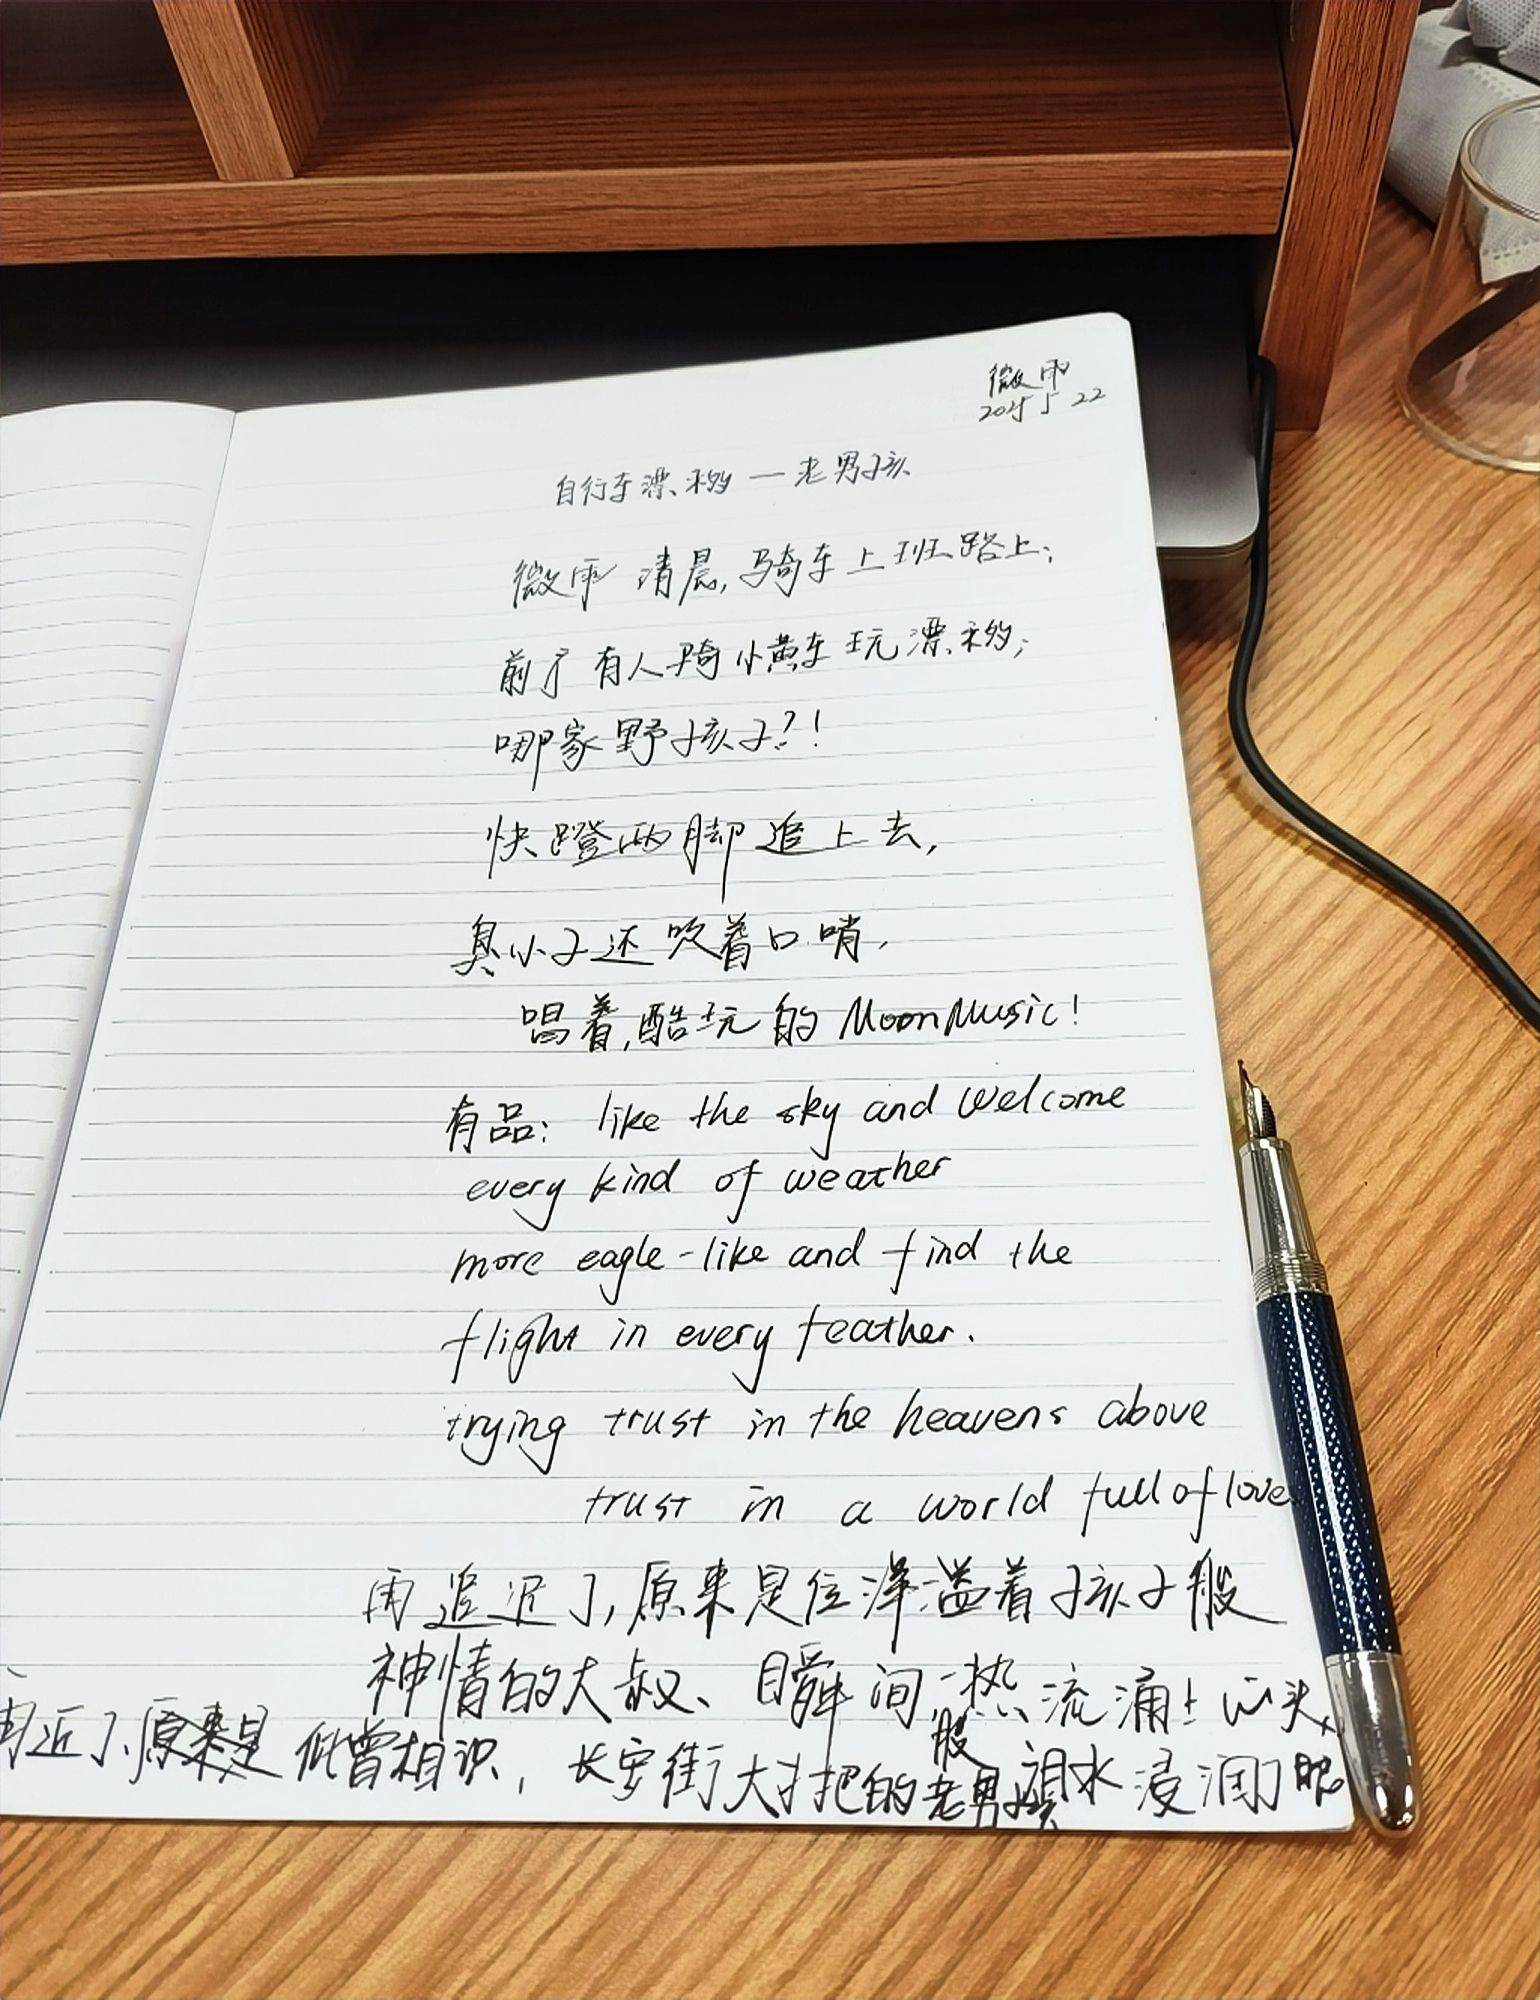 微雨
2025 5 22
自行车漂移—老男孩
微雨清晨,骑车上班路上;
前方有人骑小黄车玩漂移;
哪家野孩子?!
快蹬两脚追上去,
臭小子还吹着口哨,
唱着,酷玩的MoonMusic!
有品: like the sky and welcome
every kind of weather
more eagle-like and find the
flight in every feather.
trying trust in the heavens above
trust in a world full of love
再追近了,原来是位洋溢着孩子般
神情的大叔、瞬间一股热流涌上心头,
再近了、原来是似曾相识, 长安街大把的老男孩 泪水浸润了眼